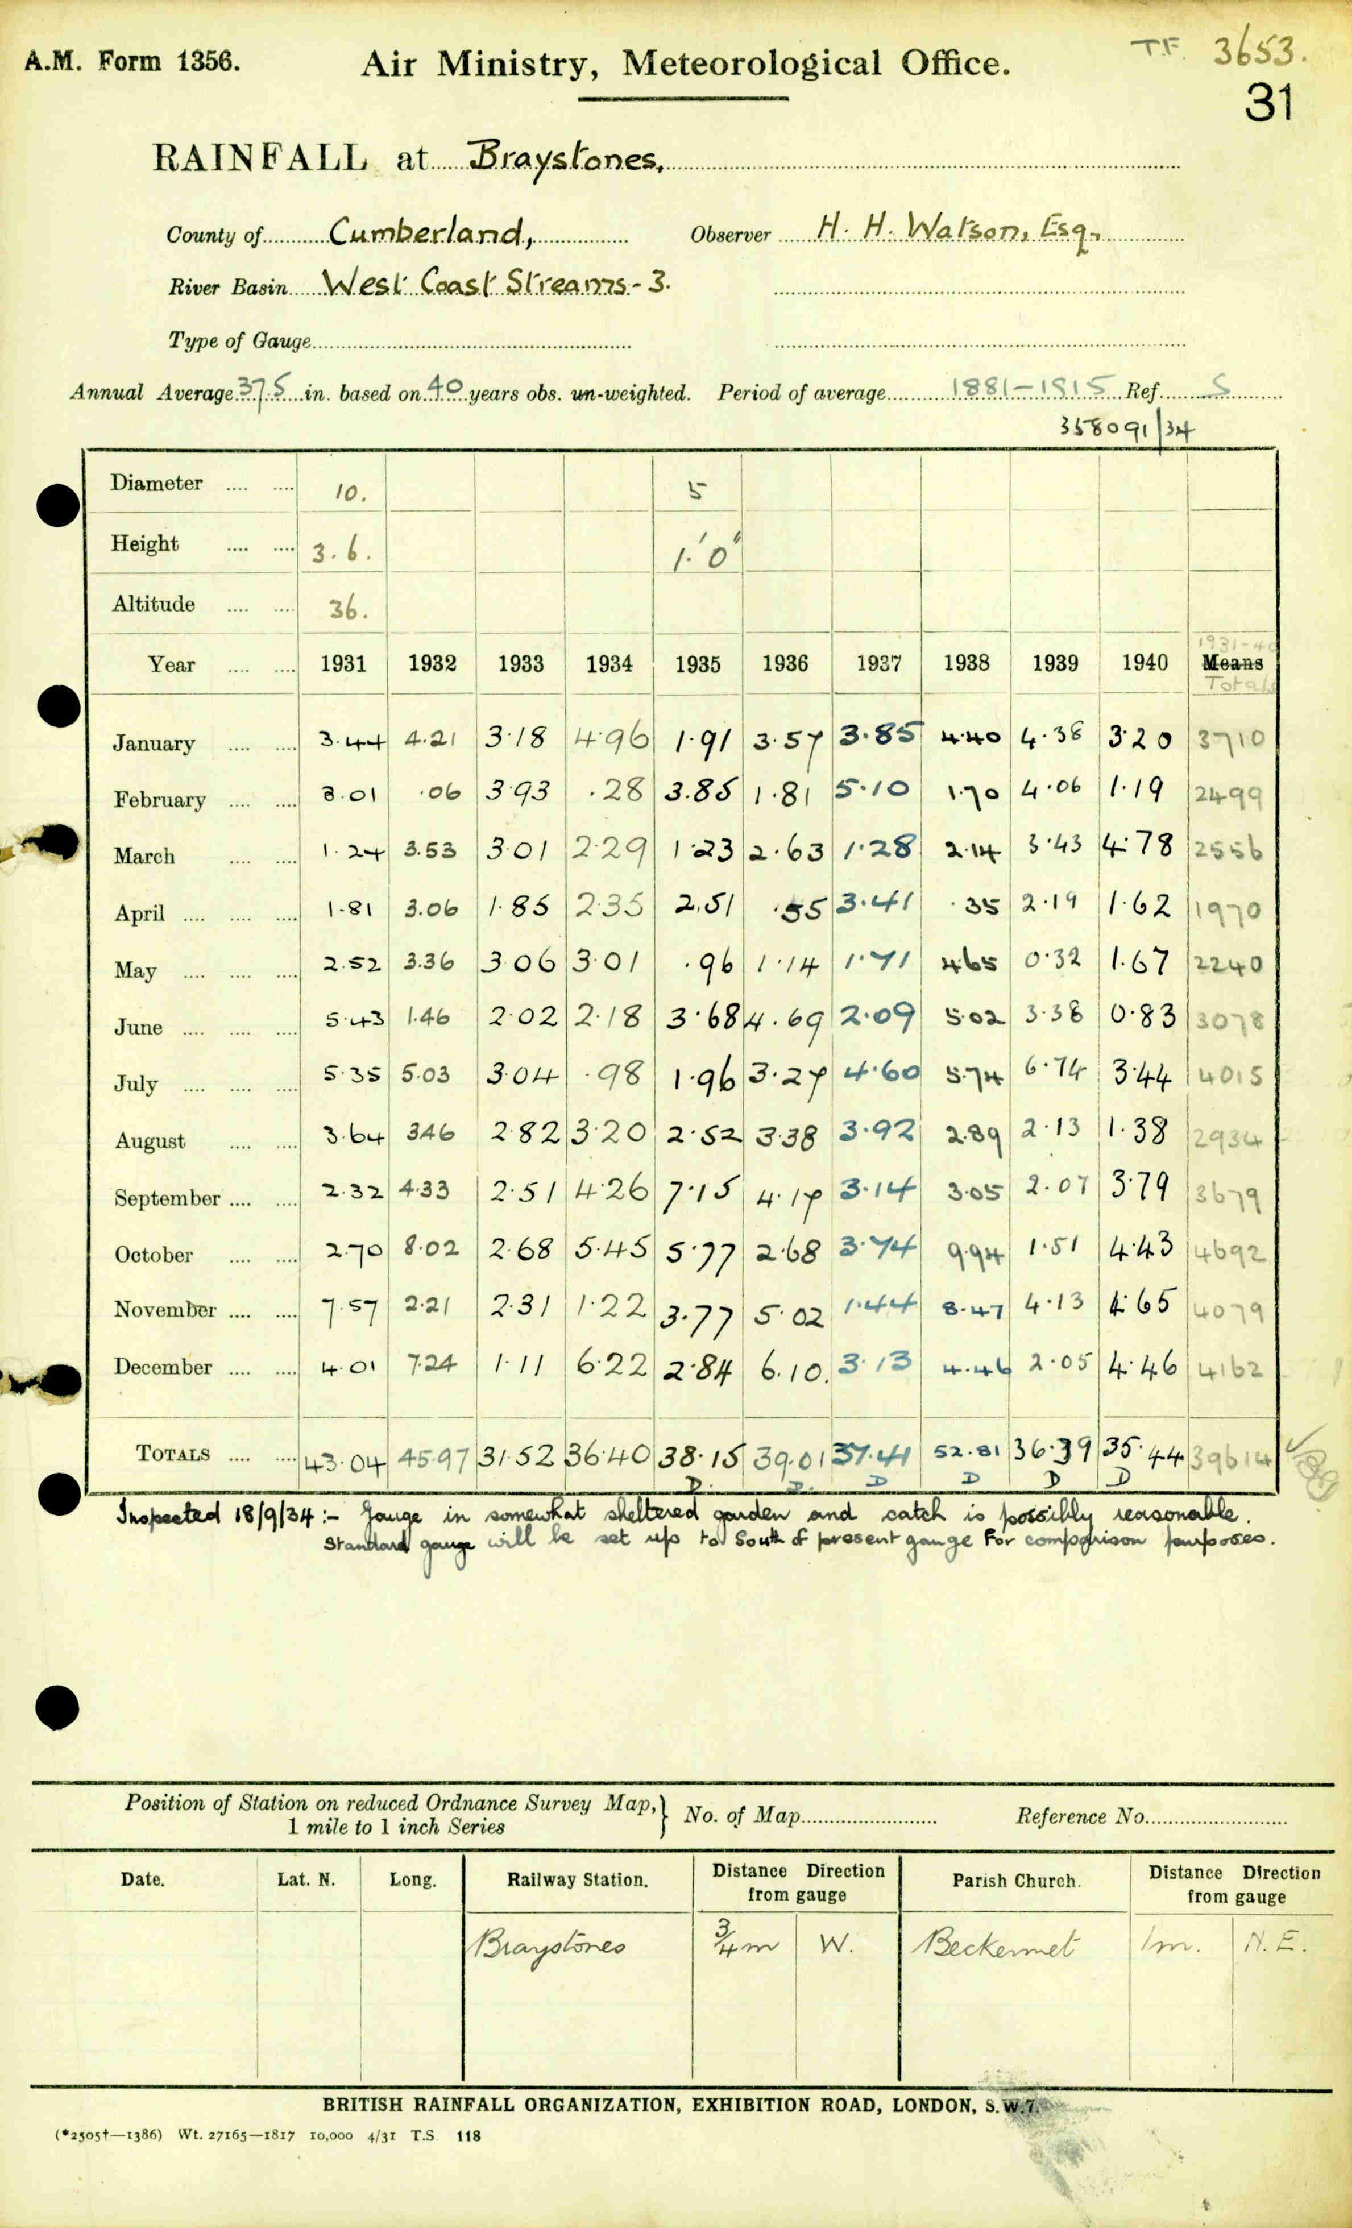 A.M. Form 1356. Air Ministry, Meteorological Office. TF. 3653.
31
RAINFALL at Braystones,
County of Cumberland, Observer H. H. Watson, Esq.
River Basin West Coast Streams - 3.
Type of Gauge
Annual Average 37.5 in. based on 40 years obs. un-weighted. Period of average 1881-1915 Ref. S
358091/34
Diameter 10. 5
Height 3.6. 1'0"
Altitude 36.
1931-40
Year 1931 1932 1933 1934 1935 1936 1937 1938 1939 1940 Means
Totals
January 3.44 4.21 3.18 4.96 1.91 3.57 3.85 4.40 4.38 3.20 3710
February 3.01 .06 3.93 .28 3.85 1.81 5.10 1.70 4.06 1.19 2499
March 1.24 3.53 3.01 2.29 1.23 2.63 1.28 2.14 3.43 4.78 2556
April 1.81 3.06 1.85 2.35 2.51 .55 3.41 .35 2.19 1.62 1970
May 2.52 3.36 3.06 3.01 .96 1.14 1.71 4.65 0.32 1.67 2240
June 5.43 1.46 2.02 2.18 3.68 4.69 2.09 5.02 3.38 0.83 3078
July 5.35 5.03 3.04 .98 1.96 3.27 4.60 5.74 6.74 3.44 4015
August 3.64 3.46 2.82 3.20 2.52 3.38 3.92 2.89 2.13 1.38 2934
September 2.32 4.33 2.51 4.26 7.15 4.17 3.14 3.05 2.07 3.79 3679
October 2.70 8.02 2.68 5.45 5.77 2.68 3.74 9.94 1.51 4.43 4692
November 7.57 2.21 2.31 1.22 3.77 5.02 1.44 8.47 4.13 4.65 4079
December 4.01 7.24 1.11 6.22 2.84 6.10. 3.13 4.46 2.05 4.46 4162
TOTALS 43.04 45.97 31.52 36.40 38.15 39.01 37.41 52.81 36.39 35.44 39614
D. D. D D D D
Inspected 18/9/34 :- Gauge in somewhat sheltered garden and catch is possibly reasonable.
Standard gauge will be set up to South of present gauge for comparison purposes.
Position of Station on reduced Ordnance Survey Map,} No. of Map Reference No.
1 mile to 1 inch Series
Date. Lat. N. Long. Railway Station. Distance Direction from gauge Parish Church. Distance Direction from gauge
Braystones 3/4 m W. Beckermet 1m. N.E.
BRITISH RAINFALL ORGANIZATION, EXHIBITION ROAD, LONDON, S.W.7.
(*2505†—1386) Wt. 27165—1817 10,000 4/31 T.S. 118